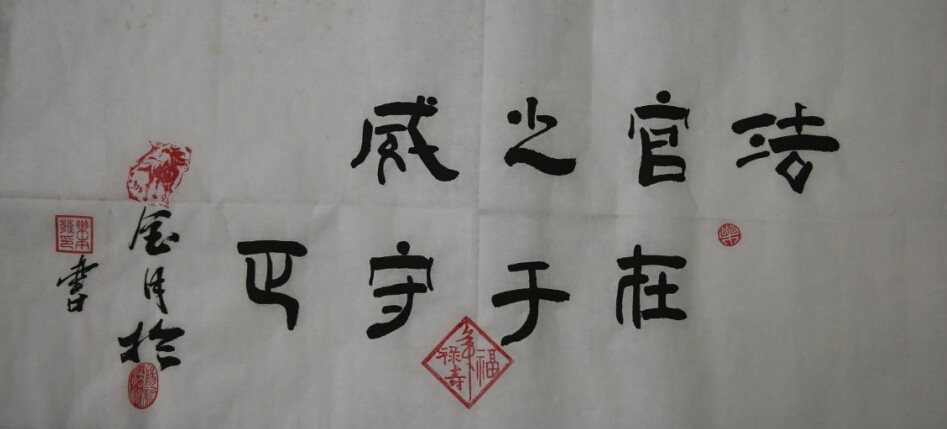 法官之威
在于守正
金月
書
福禄寿